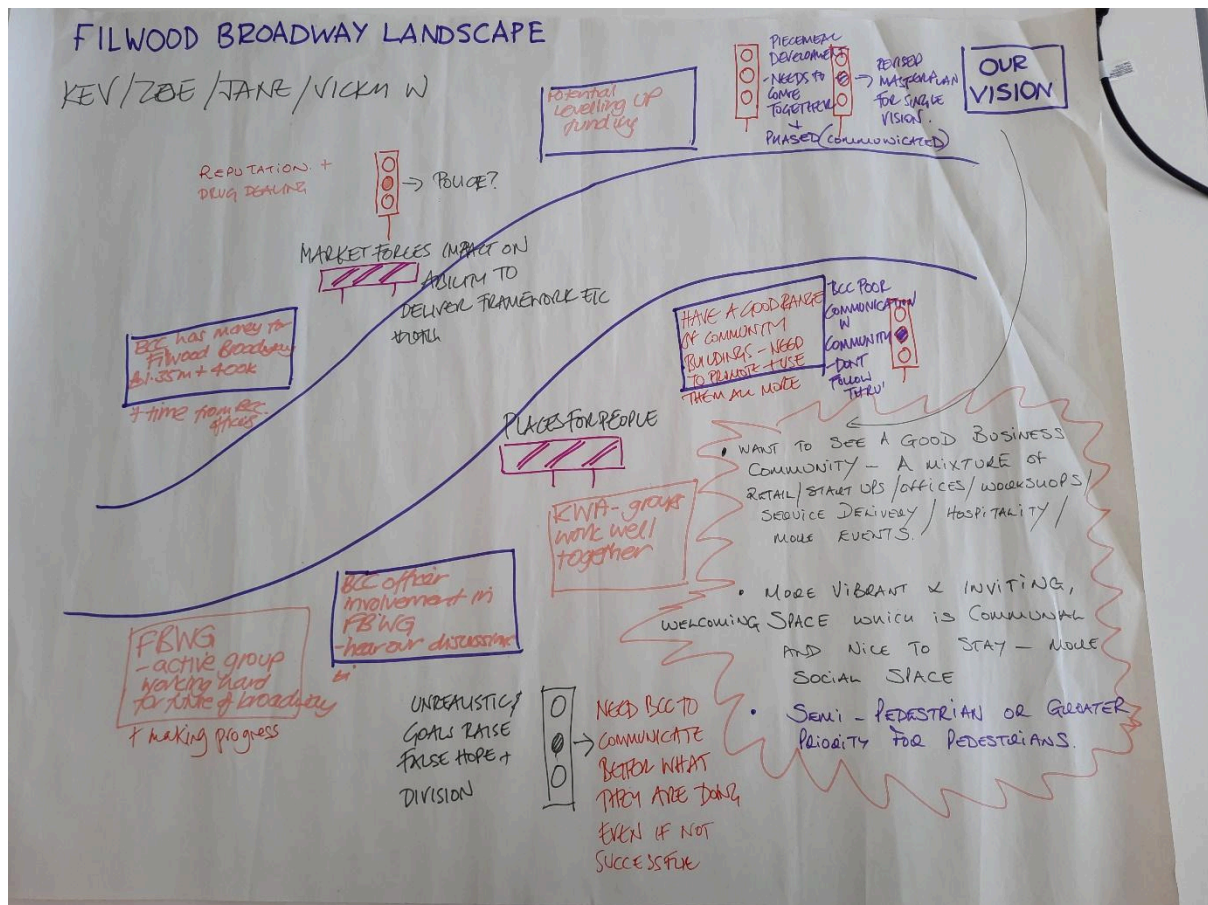 FILWOOD BROADWAY LANDSCAPE
KEV/ZOE/JANE/VICKY W
REPUTATION +
DRUG DEALING
→ POLICE?
POTENTIAL
LEVELLING UP
funding
PIECEMEAL
DEVELOPMENT
- NEEDS TO
COME
TOGETHER
+
PHASED (COMMUNICATED)
→ REVISED
MASTERPLAN
FOR SINGLE
VISION.
OUR
VISION
MARKET FORCES IMPACT ON
ABILITY TO
DELIVER FRAMEWORK ETC
BCC has money for
Filwood Broadway
£1.35m + 400k
+ time from BCC
HAVE A GOOD RANGE
OF COMMUNITY
BUILDINGS - NEED
TO PROMOTE + USE
THEM ALL MORE
BCC POOR
COMMUNICATION
IN
COMMUNITY
- DONT
FOLLOW
THRU'
PLACES FOR PEOPLE
KWA - groups
work well
together
BCC officer
involvement in
FBWG
- hear our discussions
FBWG
- active group
working hard
for future of broadway
+ making progress
UNREALISTIC
GOALS RAISE
FALSE HOPE +
DIVISION
→ NEED BCC TO
COMMUNICATE
BETTER WHAT
THEY ARE DOING
EVEN IF NOT
SUCCESSFUL
• WANT TO SEE A GOOD BUSINESS
COMMUNITY - A MIXTURE OF
RETAIL/START UPS/OFFICES/WORKSHOPS/
SERVICE DELIVERY/HOSPITALITY/
MORE EVENTS.
• MORE VIBRANT & INVITING,
WELCOMING SPACE WHICH IS COMMUNAL
AND NICE TO STAY - MORE
SOCIAL SPACE
• SEMI-PEDESTRIAN OR GREATER
PRIORITY FOR PEDESTRIANS.